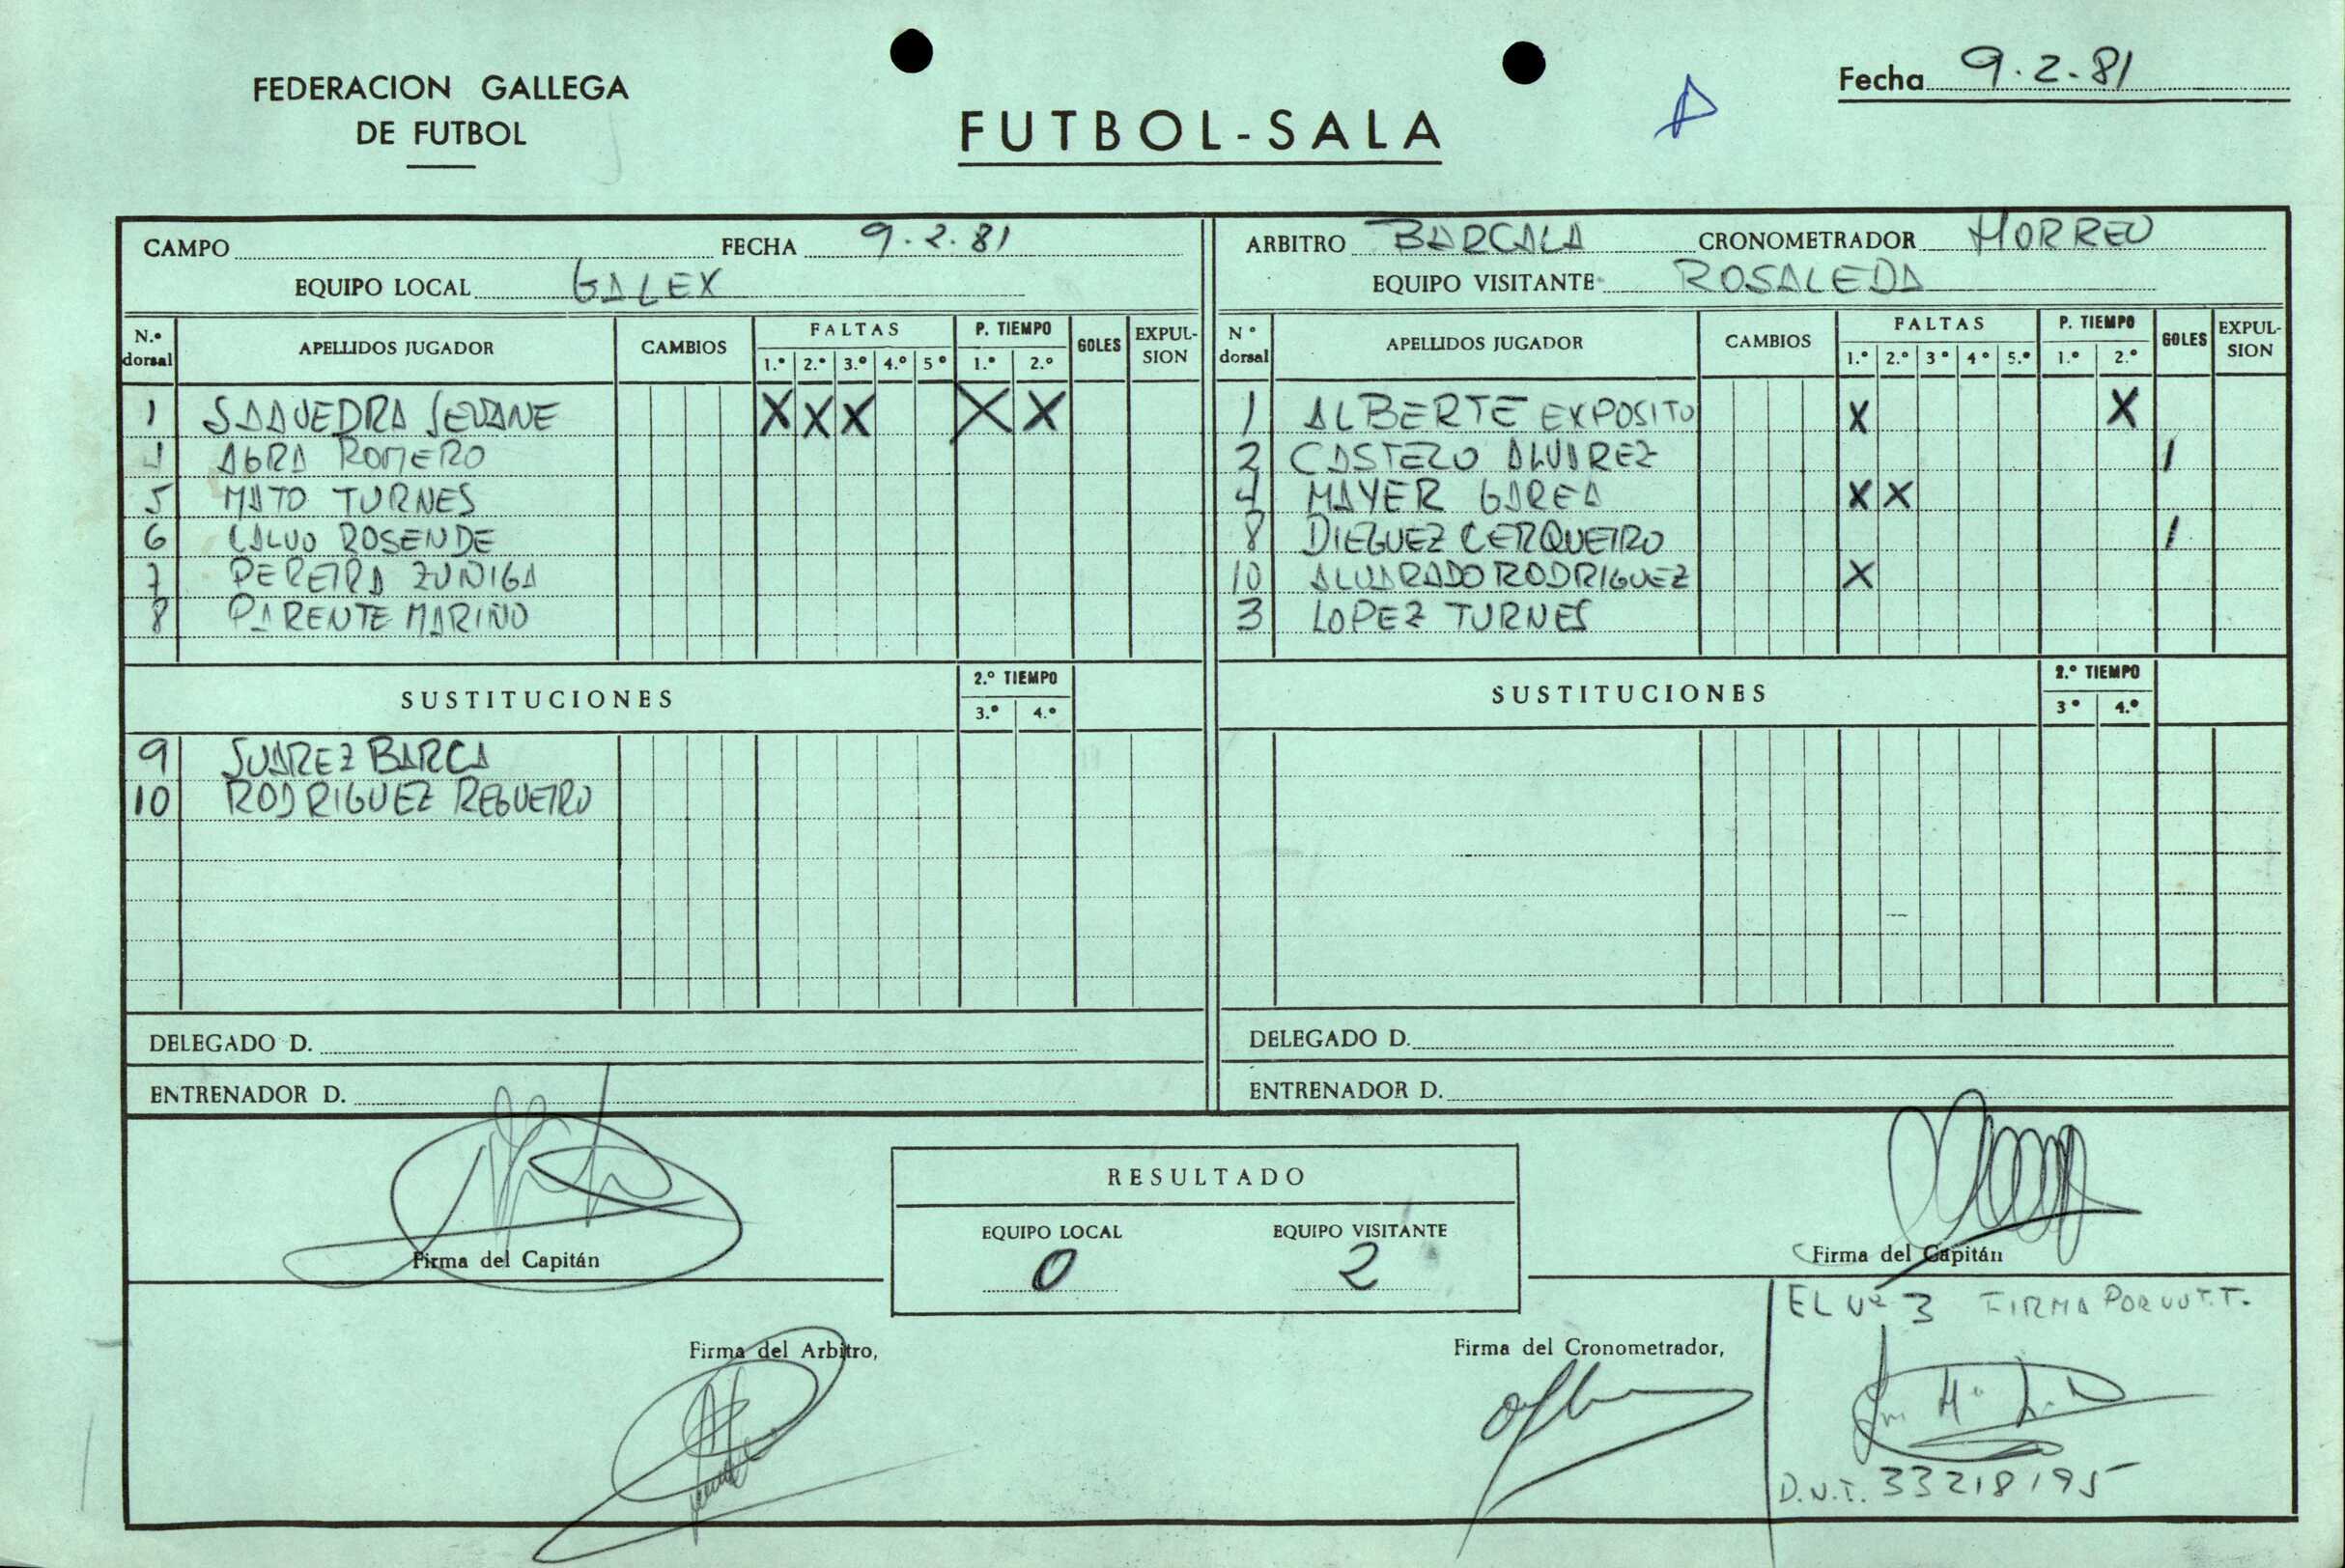 FEDERACION GALLEGA
DE FUTBOL
FUTBOL-SALA
Fecha 9.2.81
CAMPO FECHA 9.2.81
EQUIPO LOCAL GALEX
N.º dorsal APELLIDOS JUGADOR CAMBIOS FALTAS 1.º 2.º 3.º 4.º 5º P. TIEMPO 1.º 2.º GOLES EXPULSION
1 SAAVEDRA SEOANE X X X X X
4 AGRA ROMERO
5 MATO TURNES
6 CALVO ROSENDE
7 PEREIRA ZUÑIGA
8 PARENTE MARIÑO
SUSTITUCIONES 2.º TIEMPO 3.º 4.º
9 SUAREZ BARCA
10 RODRIGUEZ REGUEIRO
DELEGADO D.
ENTRENADOR D.
ARBITRO BARCALA CRONOMETRADOR HORREO
EQUIPO VISITANTE ROSALEDA
Nº dorsal APELLIDOS JUGADOR CAMBIOS FALTAS 1.º 2.º 3º 4º 5.º P. TIEMPO 1.º 2.º GOLES EXPULSION
1 ALBERTE EXPOSITO X X
2 CASTELO ALVAREZ 1
4 MAYER GAREA X X
8 DIEGUEZ CERQUEIRO 1
10 ALVARADO RODRIGUEZ X
3 LOPEZ TURNES
SUSTITUCIONES 2.º TIEMPO 3º 4.º
DELEGADO D.
ENTRENADOR D.
Firma del Capitán
RESULTADO
EQUIPO LOCAL EQUIPO VISITANTE
0 2
Firma del Capitán
Firma del Arbitro,
Firma del Cronometrador,
EL Nº 3 FIRMA POR
D.N.I. 33218195